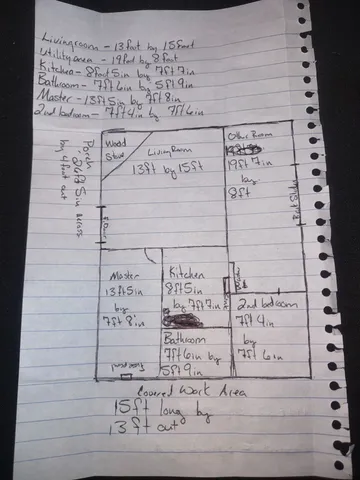 Livingroom - 13foot by 15feet
Utilityroom - 19foot by 8foot
Kitchen - 8foot 5in by 7ft 7in
Bathroom - 7ft 6in by 5ft 9in
Master - 13ft 5in by 7ft 8in
2nd bedroom - 7ft 4in by 7ft 6in
Porch 26ft 5in across
by 4foot out
Wood
Stove
Living Room
13ft by 15ft
Other Room
19ft 7in
by
8ft
Door
Master
13ft 5in
by
7ft 8in
Kitchen
8ft 5in
by 7ft 7in
2nd bedroom
7ft 4in
by
7ft 6in
Bathroom
7ft 6in by
5ft 9in
Covered Work Area
15ft long by
13ft out